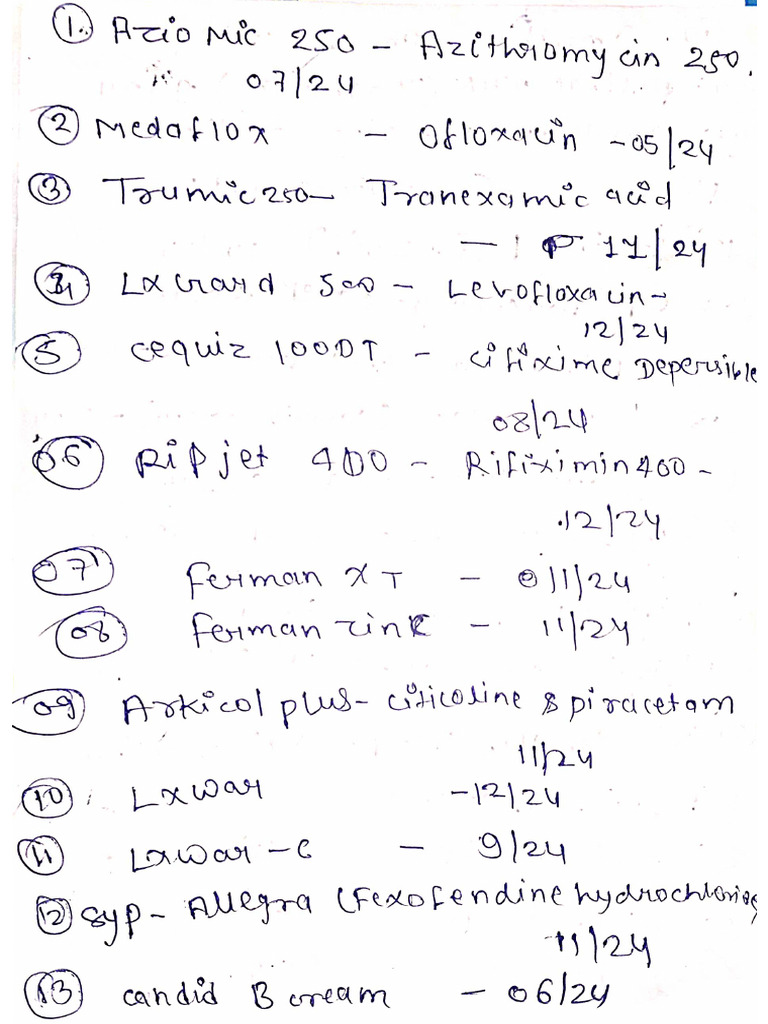 1. Azio Mic 250 - Azithromycin 250.
07/24
2 Medaflox - Ofloxacin - 05/24
3 Trumic 250 - Tranexamic acid
- 11/24
4 LX Guard 500 - Levofloxacin -
12/24
5 cequiz 100DT - cifixime Depersible
08/24
06 Ripjet 400 - Rifiximin 400 -
.12/24
07 Ferman XT - 011/24
08 Ferman zink - 11/24
09 Arkicol plus - citicoline & piracetam
11/24
10 Lxwar - 12/24
11 Lxwar - c - 9/24
12 Syp - Allegra (Fexofendine hydrochloride
11/24
13 candid B cream - 06/24